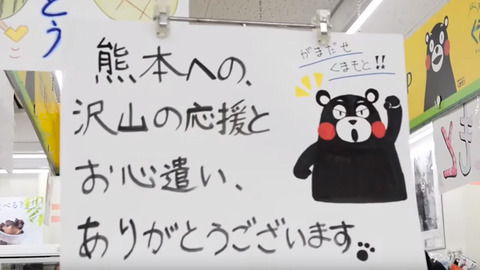 とう
がまだせ
くまもと!!
熊本への、
沢山の応援と
お心遣い、
ありがとうございます。
べる?